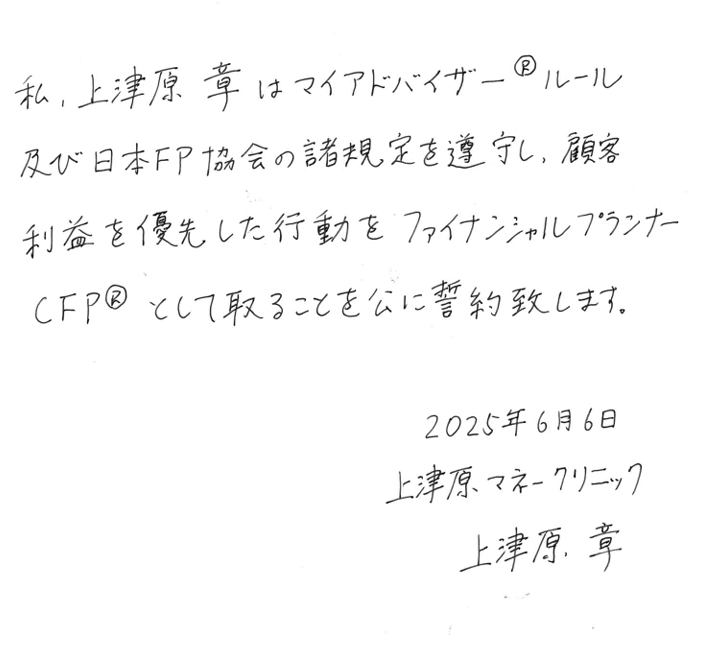 私、上津原 章はマイアドバイザー®ルール
及び日本FP協会の諸規定を遵守し、顧客
利益を優先した行動をファイナンシャルプランナー
CFP®として取ることを公に誓約致します。
2025年6月6日
上津原マネークリニック
上津原 章